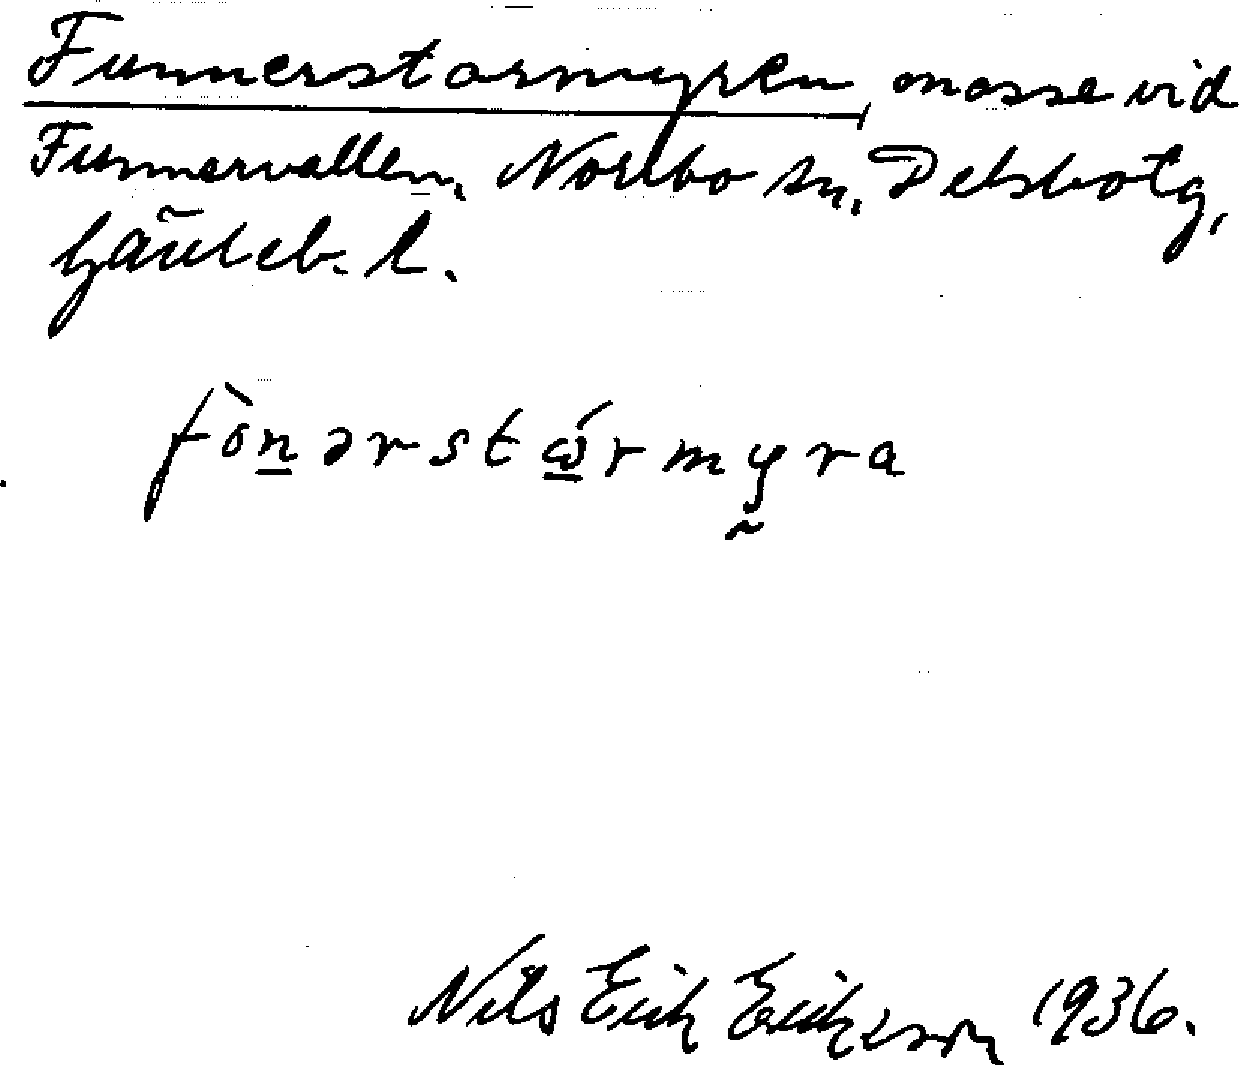 Funnerstormyren, mosse vid
Funnervallen, Norrbo sn, Delsbo tg,
Gävleb. l.
fònərstǿrmyra
Nils Erik Erikson 1936.